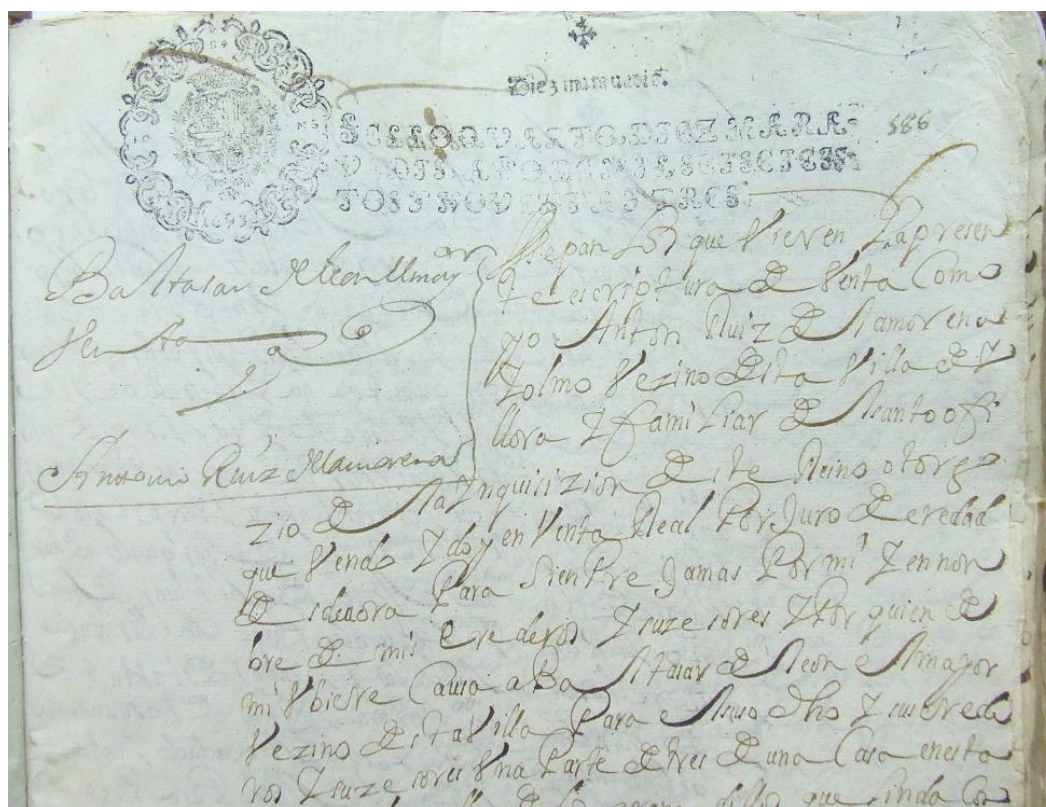 Diez maravedis.
SELLO QVARTO, DIEZ MARA-
VEDIS, AÑO DE MIL Y SEISCIEN-
TOS Y NOVENTA Y TRES.
586
1693
Baltasar de leon el maor
Venta
Antonio Ruiz de la morena
Sepan los que Vieren La presen
te escriptura de Venta Como
yo Anton Ruiz de la morena
Y olmo Vezino desta Villa de Y
llora Y familiar del santo ofi
zio de la Ynquisizion deste Reino otorgo
que Vendo Y doy en Venta Real Por Juro de eredad
desde aora Para sienPre Jamas Por mi Y en non
bre de mis erederos Y suzesores Y Por quien de
mi Vbiere Causa a Baltasar de leon el mayor
Vezino desta Villa Para el suso dho Y sus erede
ros Y suzesores Vna Parte de tres de una Casa en esta
que linda Co